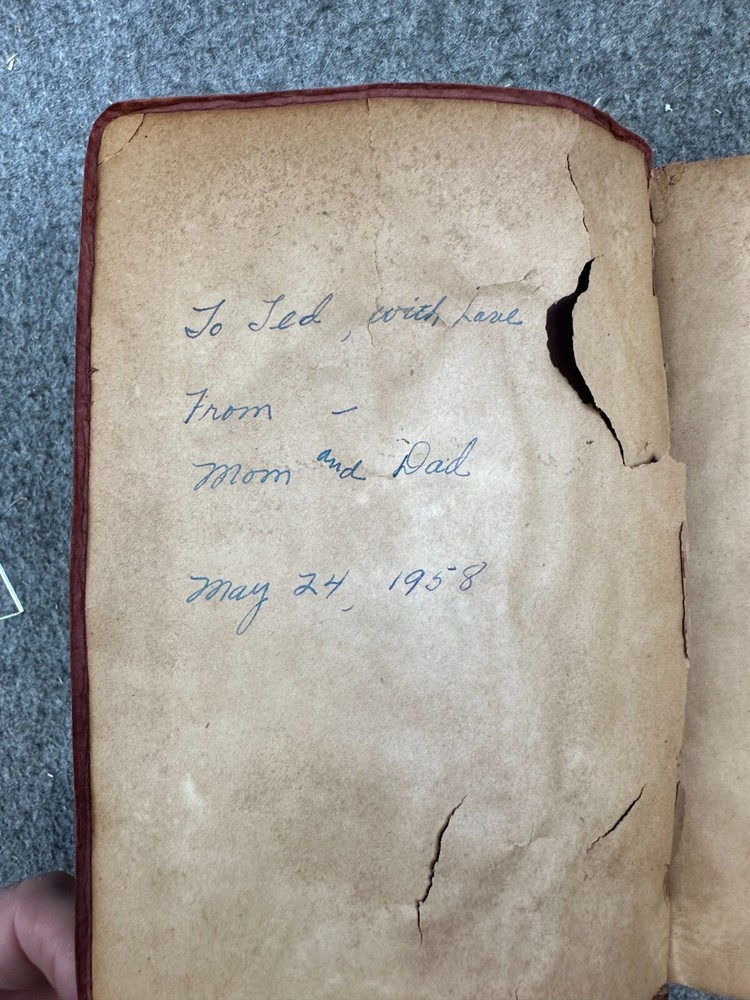 To Ted, with Love
From –
Mom and Dad
May 24, 1958